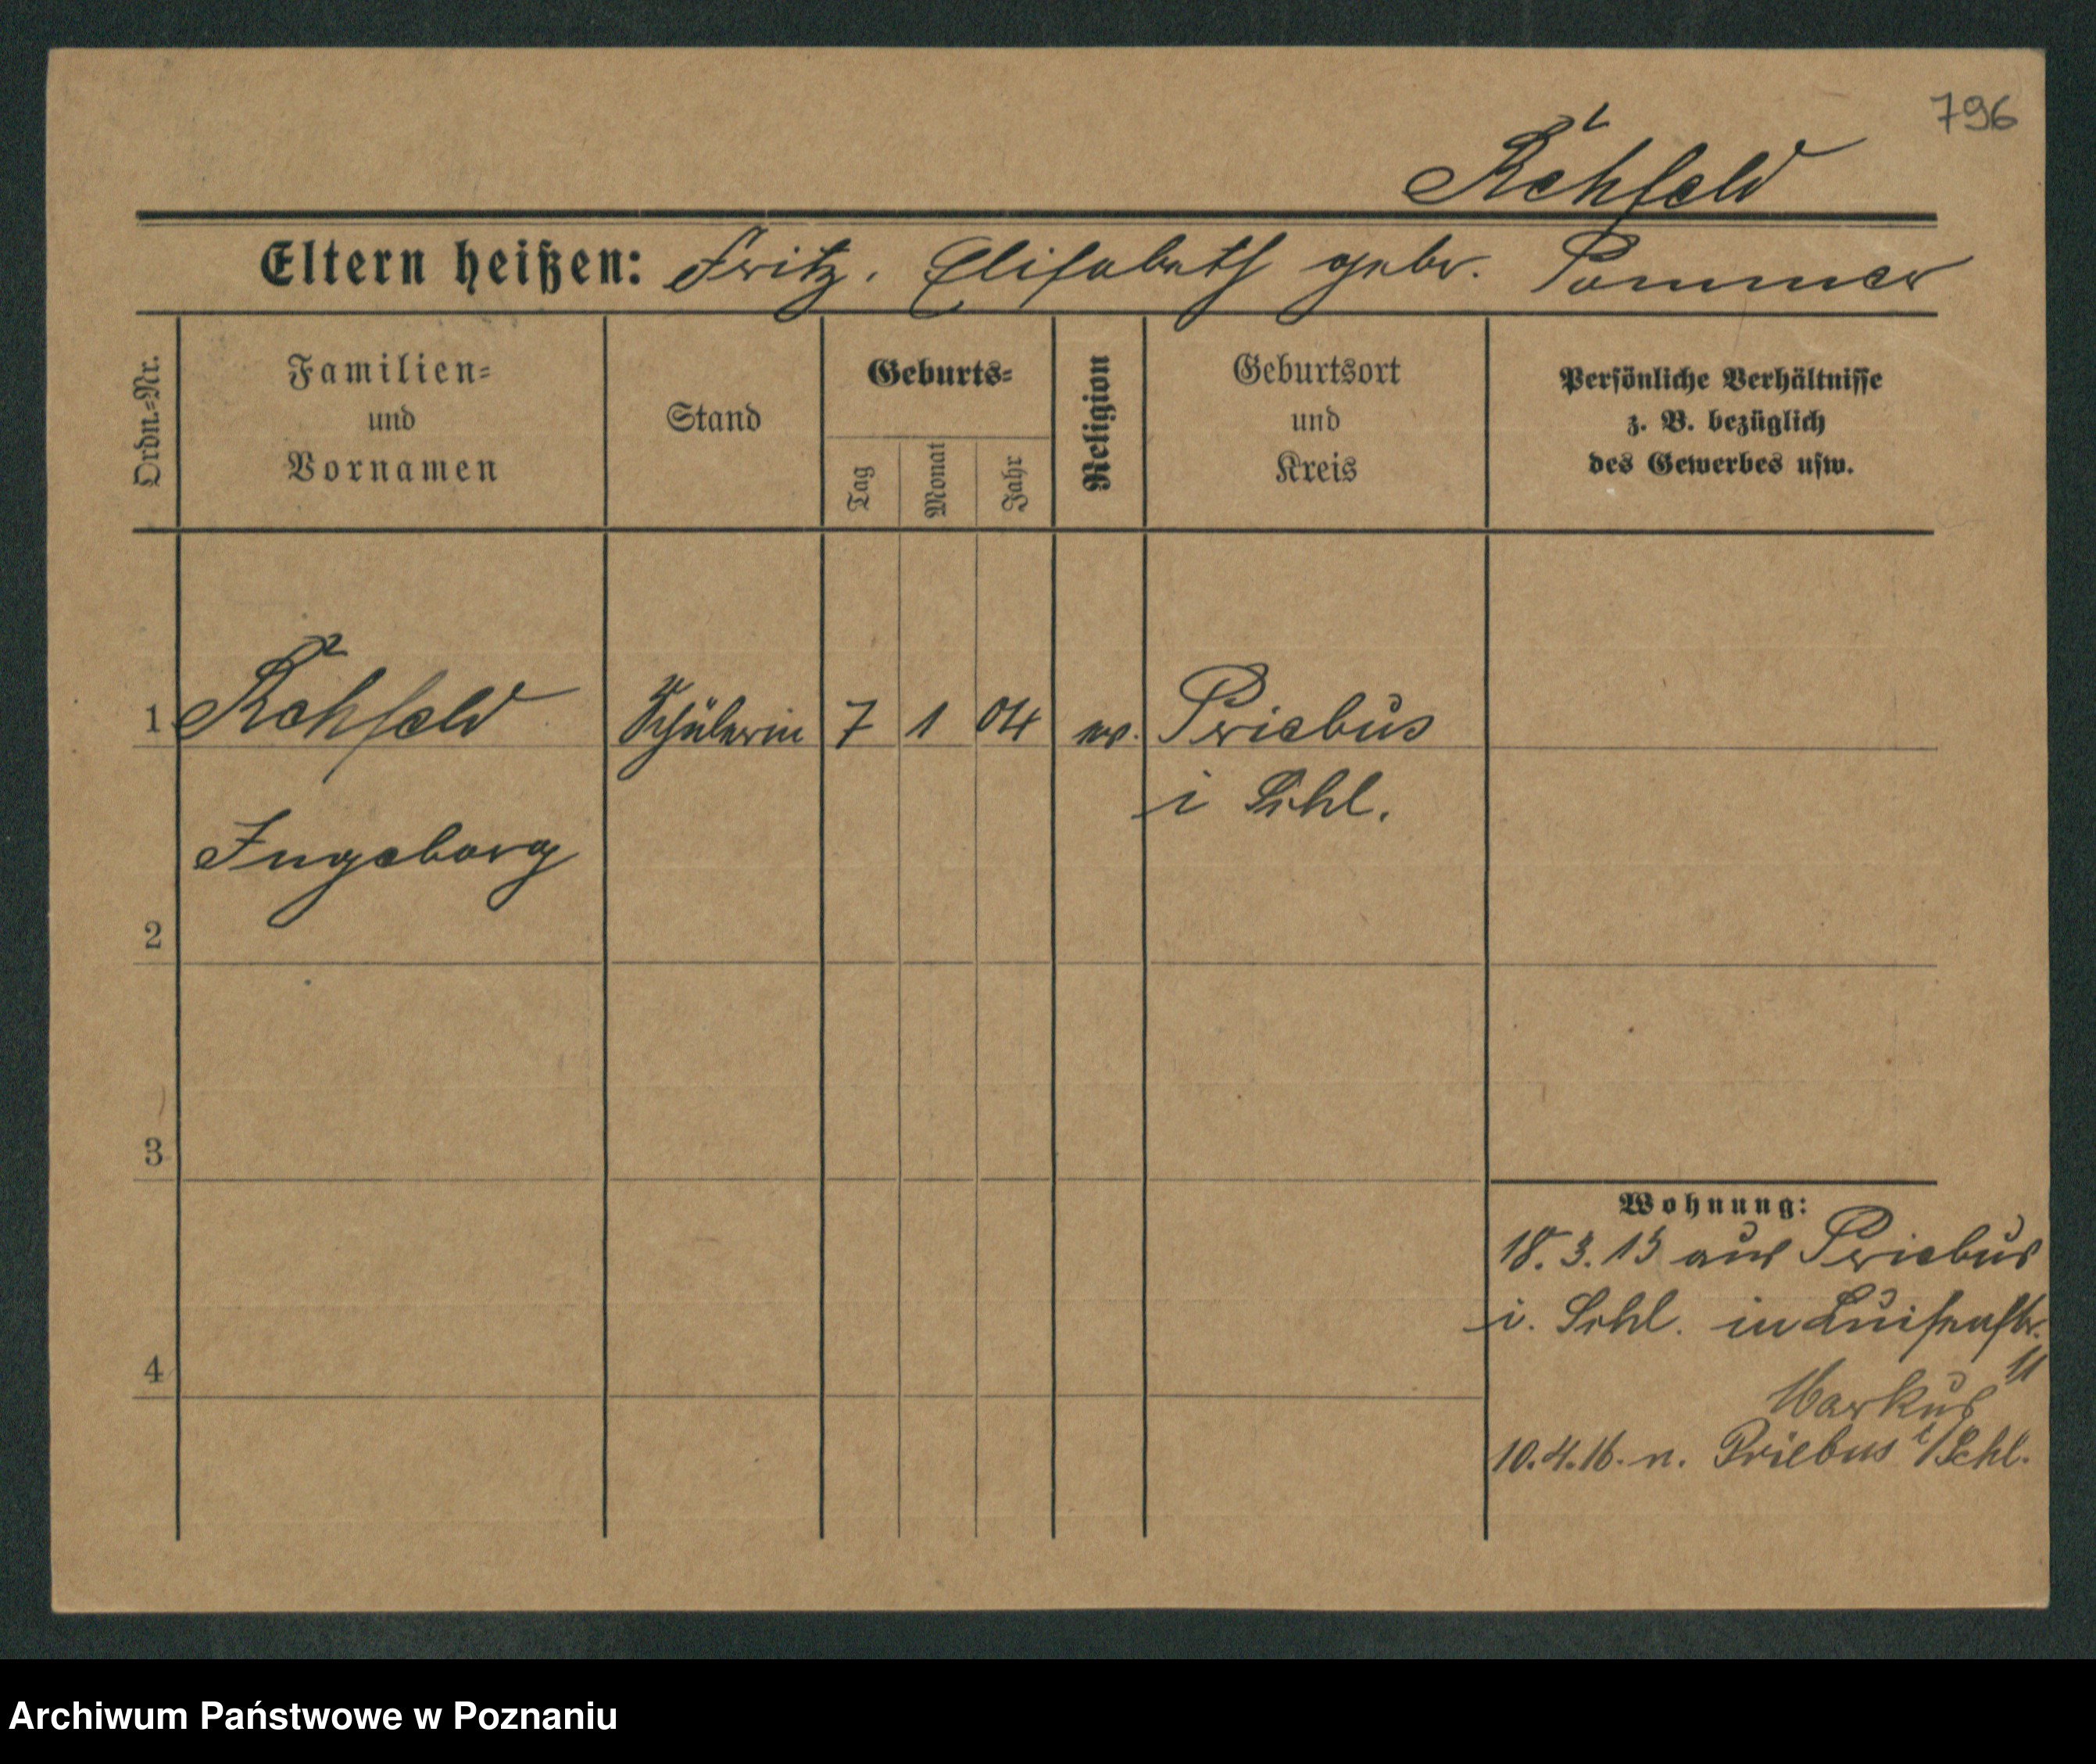 796
Rehfeld
Eltern heißen: Fritz, Elisabeth gebr. Pommer
Ordn.=Nr.
Familien=
und
Vornamen
Stand
Geburts=
Tag
Monat
Jahr
Religion
Geburtsort
und
Kreis
Persönliche Verhältnisse
z. B. bezüglich
des Gewerbes usw.
1 Rehfeld Schülerin 7 1 04 ev. Priebus
i Schl.
Ingeborg
2
3
4
Wohnung:
18.3.15 aus Priebus
i. Schl. in Luisenstr.
11
Markus
10.4.16. n. Priebus i/Schl.
Archiwum Państwowe w Poznaniu